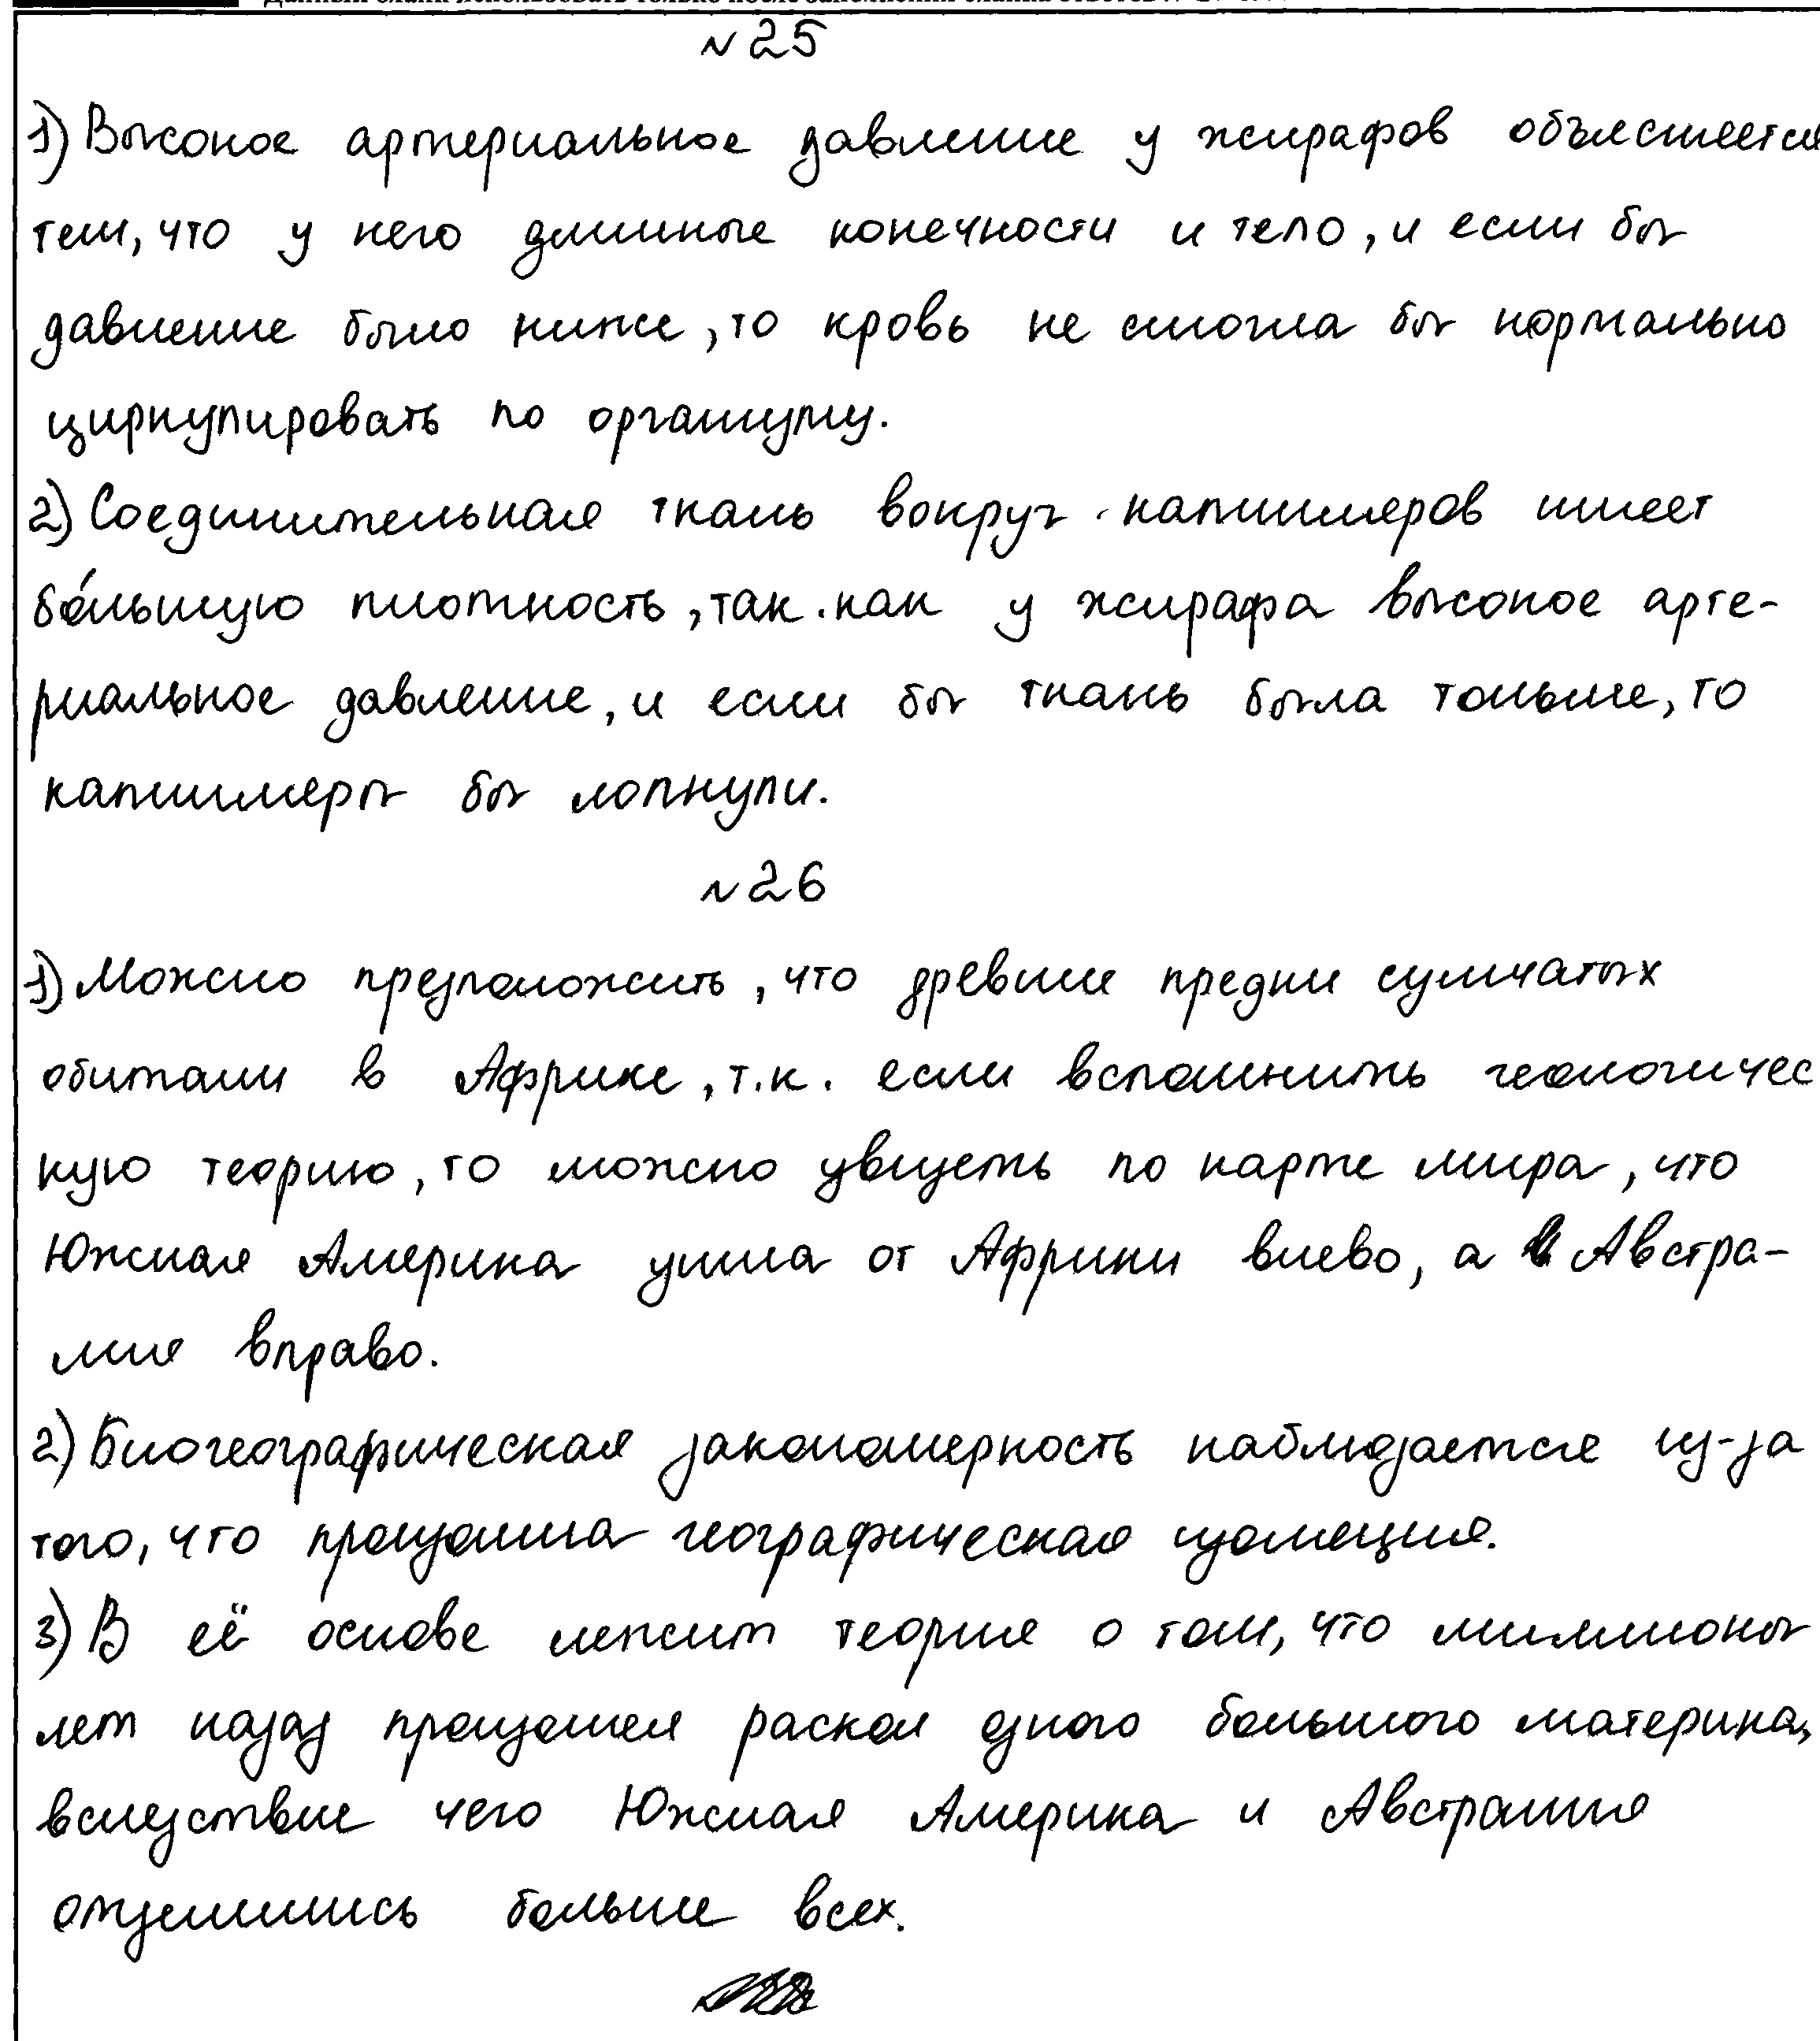 №25
1) Высокое артериальное давление у жирафов объясняется
тем, что у него длинные конечности и тело, и если бы
давление было ниже, то кровь не смогла бы нормально
циркулировать по организму.
2) Соединительная ткань вокруг капилляров имеет
бо́льшую плотность, так как у жирафа высокое арте-
риальное давление, и если бы ткань была тоньше, то
капилляры бы лопнули.
№26
1) Можно предположить, что древние предки сумчатых
обитали в Африке, т.к. если вспомнить геологичес
кую теорию, то можно увидеть по карте мира, что
Южная Америка ушла от Африки влево, а Австра-
лия вправо.
2) Биогеографическая закономерность наблюдается из-за
того, что произошла географическая изоляция.
3) В её основе лежит теория о том, что миллионы
лет назад произошел раскол одного большого материка,
вследствие чего Южная Америка и Австралия
отдалились больше всех.